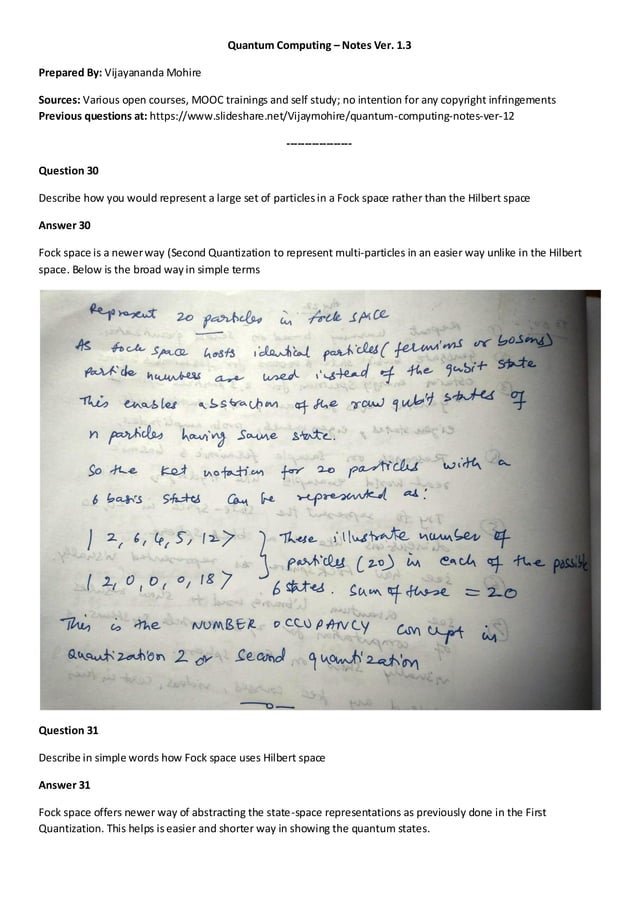 Quantum Computing – Notes Ver. 1.3
Prepared By: Vijayananda Mohire
Sources: Various open courses, MOOC trainings and self study; no intention for any copyright infringements
Previous questions at: https://www.slideshare.net/Vijaymohire/quantum-computing-notes-ver-12
------------------
Question 30
Describe how you would represent a large set of particles in a Fock space rather than the Hilbert space
Answer 30
Fock space is a newer way (Second Quantization to represent multi-particles in an easier way unlike in the Hilbert
space. Below is the broad way in simple terms
Represent 20 particles in fock space
As fock space hosts identical particles (fermions or bosons)
particle numbers are used instead of the qubit state
This enables abstraction of the raw qubit states of
n particles having same state.
So the ket notation for 20 particles with a
6 basis states can be represented as:
| 2, 6, 6, 5, 12> } These illustrate number of
particles (20) in each of the possible
| 2, 0, 0, 0, 18> 6 states. Sum of these = 20
This is the NUMBER OCCUPANCY concept in
Quantization 2 or second quantization
Question 31
Describe in simple words how Fock space uses Hilbert space
Answer 31
Fock space offers newer way of abstracting the state-space representations as previously done in the First
Quantization. This helps is easier and shorter way in showing the quantum states.